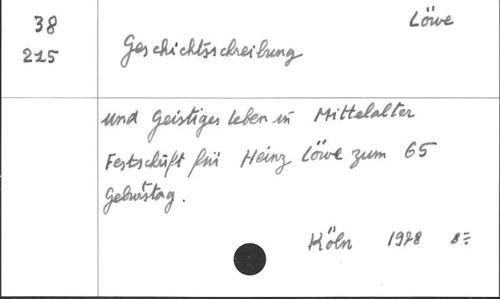 38 Löwe
215 Geschichtsschreibung
und Geistiges Leben in Mittelalter
Festschrift für Heinz Löwe zum 65
Geburtstag.
Köln 1978 8=